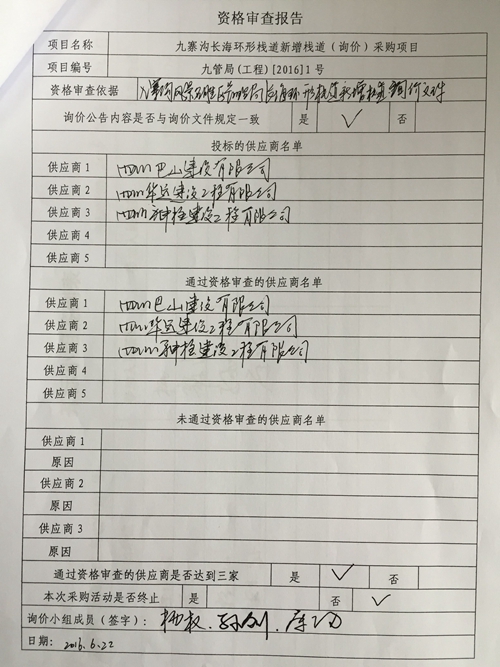 资格审查报告
项目名称 九寨沟长海环形栈道新增栈道（询价）采购项目
项目编号 九管局(工程)[2016]1号
资格审查依据 环形栈道新增栈道询价文件
询价公告内容是否与询价文件规定一致 是 ✓ 否
投标的供应商名单
供应商1 四川巴山建设有限公司
供应商2 四川华远建设工程有限公司
供应商3 四川神柱建设工程有限公司
供应商4
供应商5
通过资格审查的供应商名单
供应商1 四川巴山建设有限公司
供应商2 四川华远建设工程有限公司
供应商3 四川神柱建设工程有限公司
供应商4
供应商5
未通过资格审查的供应商名单
供应商1
原因
供应商2
原因
供应商3
原因
通过资格审查的供应商是否达到三家 是 ✓ 否
本次采购活动是否终止 是 否 ✓
询价小组成员（签字）：
日期： 2016.6.22